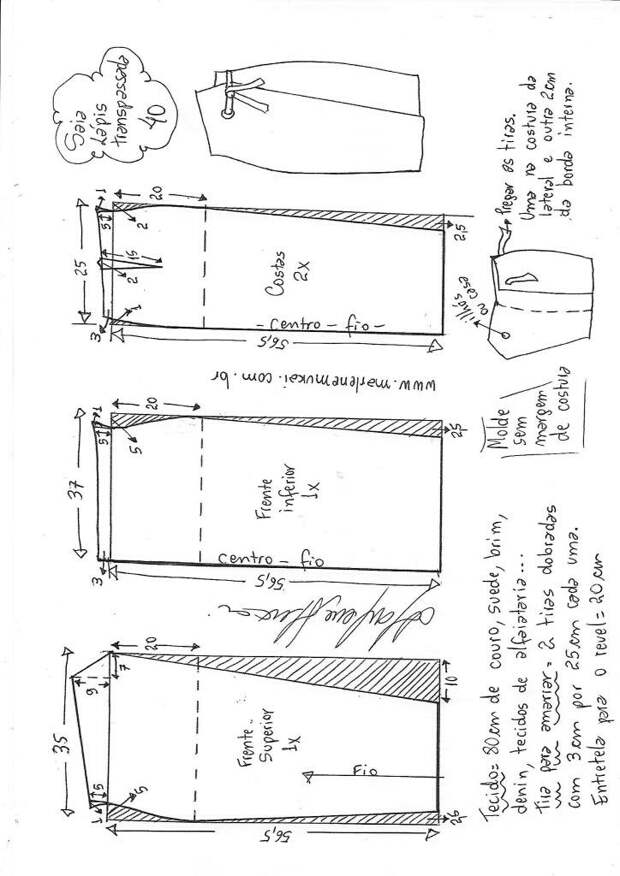 Saia
Lápis
transpassada
40
25
3
1
15
2
2
5
1
20
Costas
2x
centro - fio
56,5
2,5
www.marlenemukai.com.br
37
3
5
1
5
20
Frente
inferior
1x
centro - fio
56,5
25
35
1
5
5
9
7
20
Frente
Superior
1x
Fio
56,5
10
Pregar as tiras.
Uma na costura da
lateral e outra 2cm
da borda interna.
ilhós
ou case
Molde
sem
margem
de costura
Tecido = 80cm de couro, suede, brim,
denin, tecidos de alfaiataria...
Tira para amarrar = 2 tiras dobradas
com 3cm por 25cm cada uma.
Entretela para o revel = 20cm